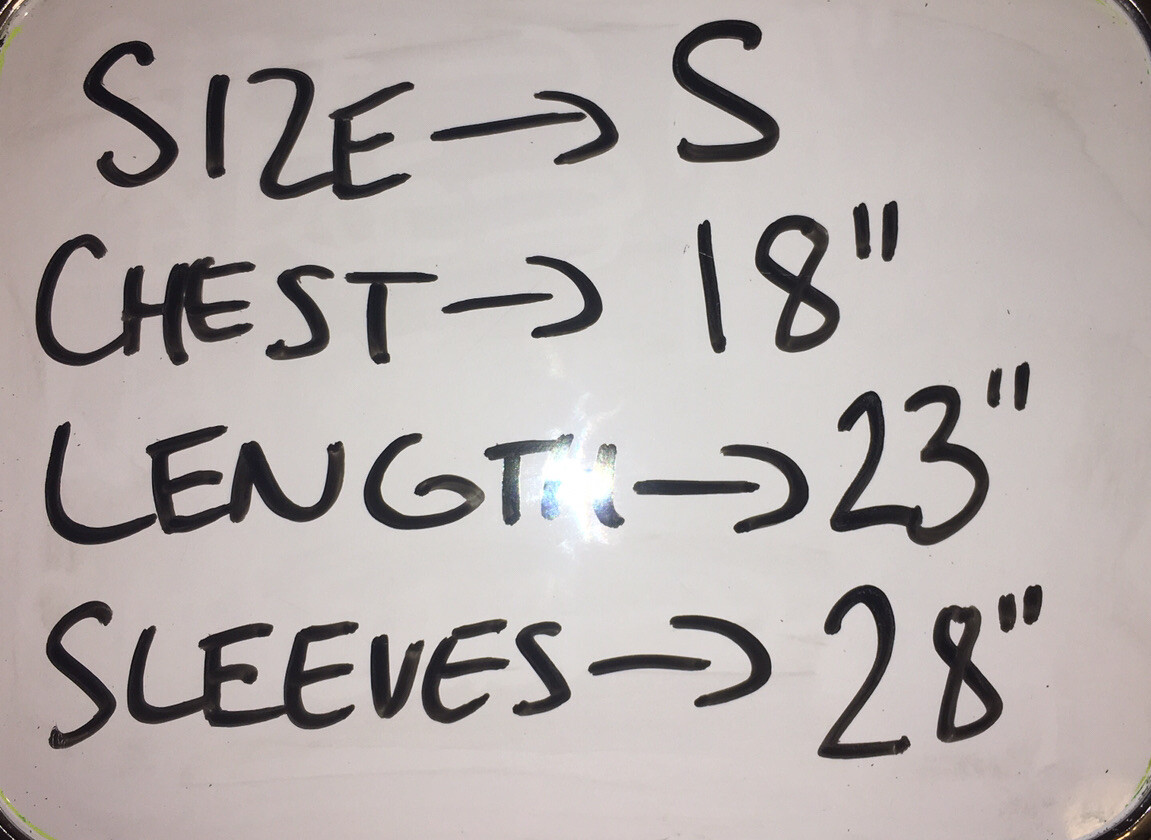 SIZE → S
CHEST → 18"
LENGTH → 23"
SLEEVES → 28"